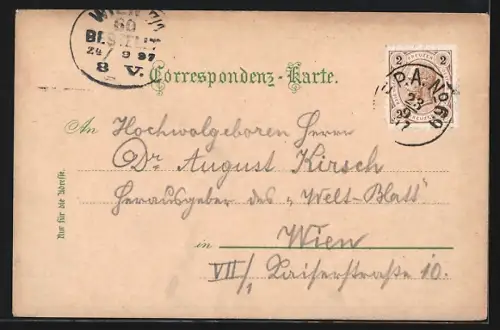 WIEN 7/1
60
BESTELLT
24/ 9 97
8 V.
Correspondenz-Karte.
2 KREUZER 2
F.P.A. No 69
23
9
97
An Hochwolgeboren Herrn
Dr August Kirsch
Herausgeber des „Welt-Blatt“
in Wien
VII/1 Kaiserstraße 10.
Nur für die Adresse.